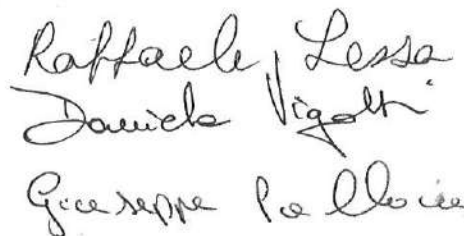 Raffaele Lessa
Daniela Vigotti
Giuseppe